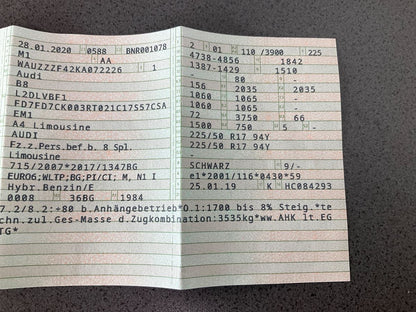 28.01.2020 0588 BNR001078
M1 AA
WAUZZZF42KA072226 1
Audi
B8
L2DLVBF1
FD7FD7CK003RT021C17S57CSA
EM1
A4 Limousine
AUDI
Fz.z.Pers.bef.b. 8 Spl.
Limousine
715/2007*2017/1347BG
EURO6;WLTP;BG;PI/CI; M, N1 I
Hybr.Benzin/E
0008 36BG 1984
2 01 110 /3900 225
4738-4856 1842
1387-1429 1510
- 80 -
156 2035 2035
1060 1065 -
1060 1065 -
72 3750 66
1500 750 5 -
225/50 R17 94Y
225/50 R17 94Y
-
SCHWARZ 9/-
e1*2001/116*0430*59
25.01.19 K HC084293
7.2/8.2:+80 b.Anhängebetrieb*O.1:1700 bis 8% Steig.*te
chn.zul.Ges-Masse d.Zugkombination:3535kg*ww.AHK lt.EG
TG*